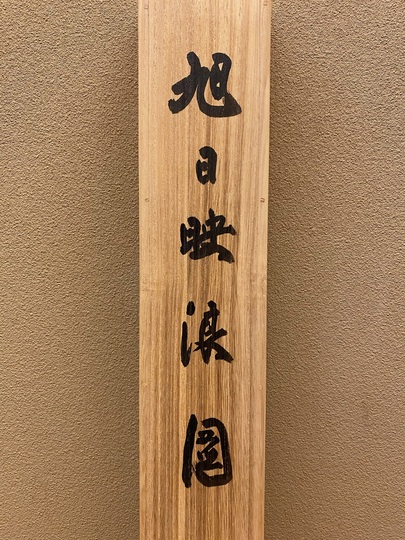 旭日映浪圖